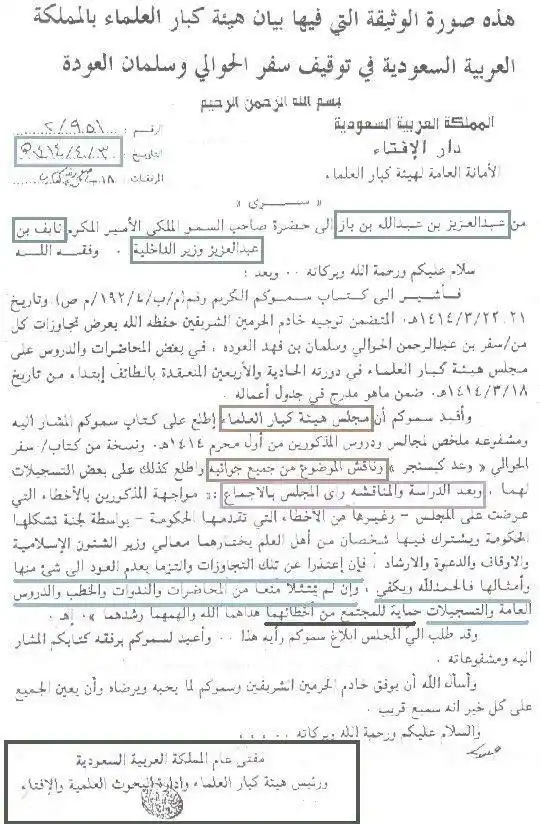 هذه صورة الوثيقة التي فيها بيان هيئة كبار العلماء بالمملكة
العربية السعودية في توقيف سفر الحوالي وسلمان العودة
بسم الله الرحمن الرحيم
المملكة العربية السعودية
دار الإفتاء
الأمانة العامة لهيئة كبار العلماء
الرقم : ٢/٩٥١
التاريخ : ١٤١٤/٤/٣
المرفقات :
« سرى »
من عبدالعزيز بن عبدالله بن باز إلى حضرة صاحب السمو الملكي الأمير المكرم نايف بن
عبدالعزيز وزير الداخلية . وفقه الله
سلام عليكم ورحمة الله وبركاته .. وبعد :
فأشير الى كتاب سموكم الكريم رقم (م/ب/١٩٢/٤/م ص) وتاريخ
٢١ـ١٤١٤/٣/٢٢هـ. المتضمن توجيه خادم الحرمين الشريفين حفظه الله بعرض تجاوزات كل
من/سفر بن عبدالرحمن الحوالي وسلمان بن فهد العوده . في بعض المحاضرات والدروس على
مجلس هيئة كبار العلماء في دورته الحادية والأربعين المنعقدة بالطائف إبتداء من تاريخ
١٤١٤/٣/١٨هـ. ضمن ماهو مدرج في جدول أعماله .
وأفيد سموكم أن مجلس هيئة كبار العلماء إطلع على كتاب سموكم المشار اليه
ومشفوعه ملخص لمجالس ودروس المذكورين من أول محرم ١٤١٤هـ. ونسخة من كتاب/ سفر
الحوالي « وعد كيسنجر » وناقش الموضوع من جميع جوانبه واطلع كذلك على بعض التسجيلات
لهما . وبعد الدراسة والمناقشه رأى المجلس بالاجماع :« مواجهة المذكورين بالأخطاء التي
عرضت على المجلس - وغيرها من الأخطاء التي تقدمها الحكومة - بواسطة لجنة تشكلها
الحكومة ويشترك فيها شخصان من أهل العلم يختارهما معالي وزير الشئون الإسلامية
والاوقاف والدعوة والارشاد . فإن إعتذرا عن تلك التجاوزات والتزما بعدم العود الى شئ منها
وأمثالها فالحمدلله ويكفي . وإن لم يمتثلا منعا من المحاضرات والندوات والخطب والدروس
العامة والتسجيلات حماية للمجتمع من أخطائهما هداهما الله وألهمهما رشدهما ». إهـ .
وقد طلب الي المجلس ابلاغ سموكم رأيه هذا .. وأعيد لسموكم برفقه كتابكم المشار
اليه ومشفوعاته .
وأسأل الله أن يوفق خادم الحرمين الشريفين وسموكم لما يحبه ويرضاه وأن يعين الجميع
على كل خير انه سميع قريب .
والسلام عليكم ورحمة الله وبركاته ....
مفتى عام المملكة العربية السعودية
ورئيس هيئة كبار العلماء وإدارة البحوث العلمية والإفتاء